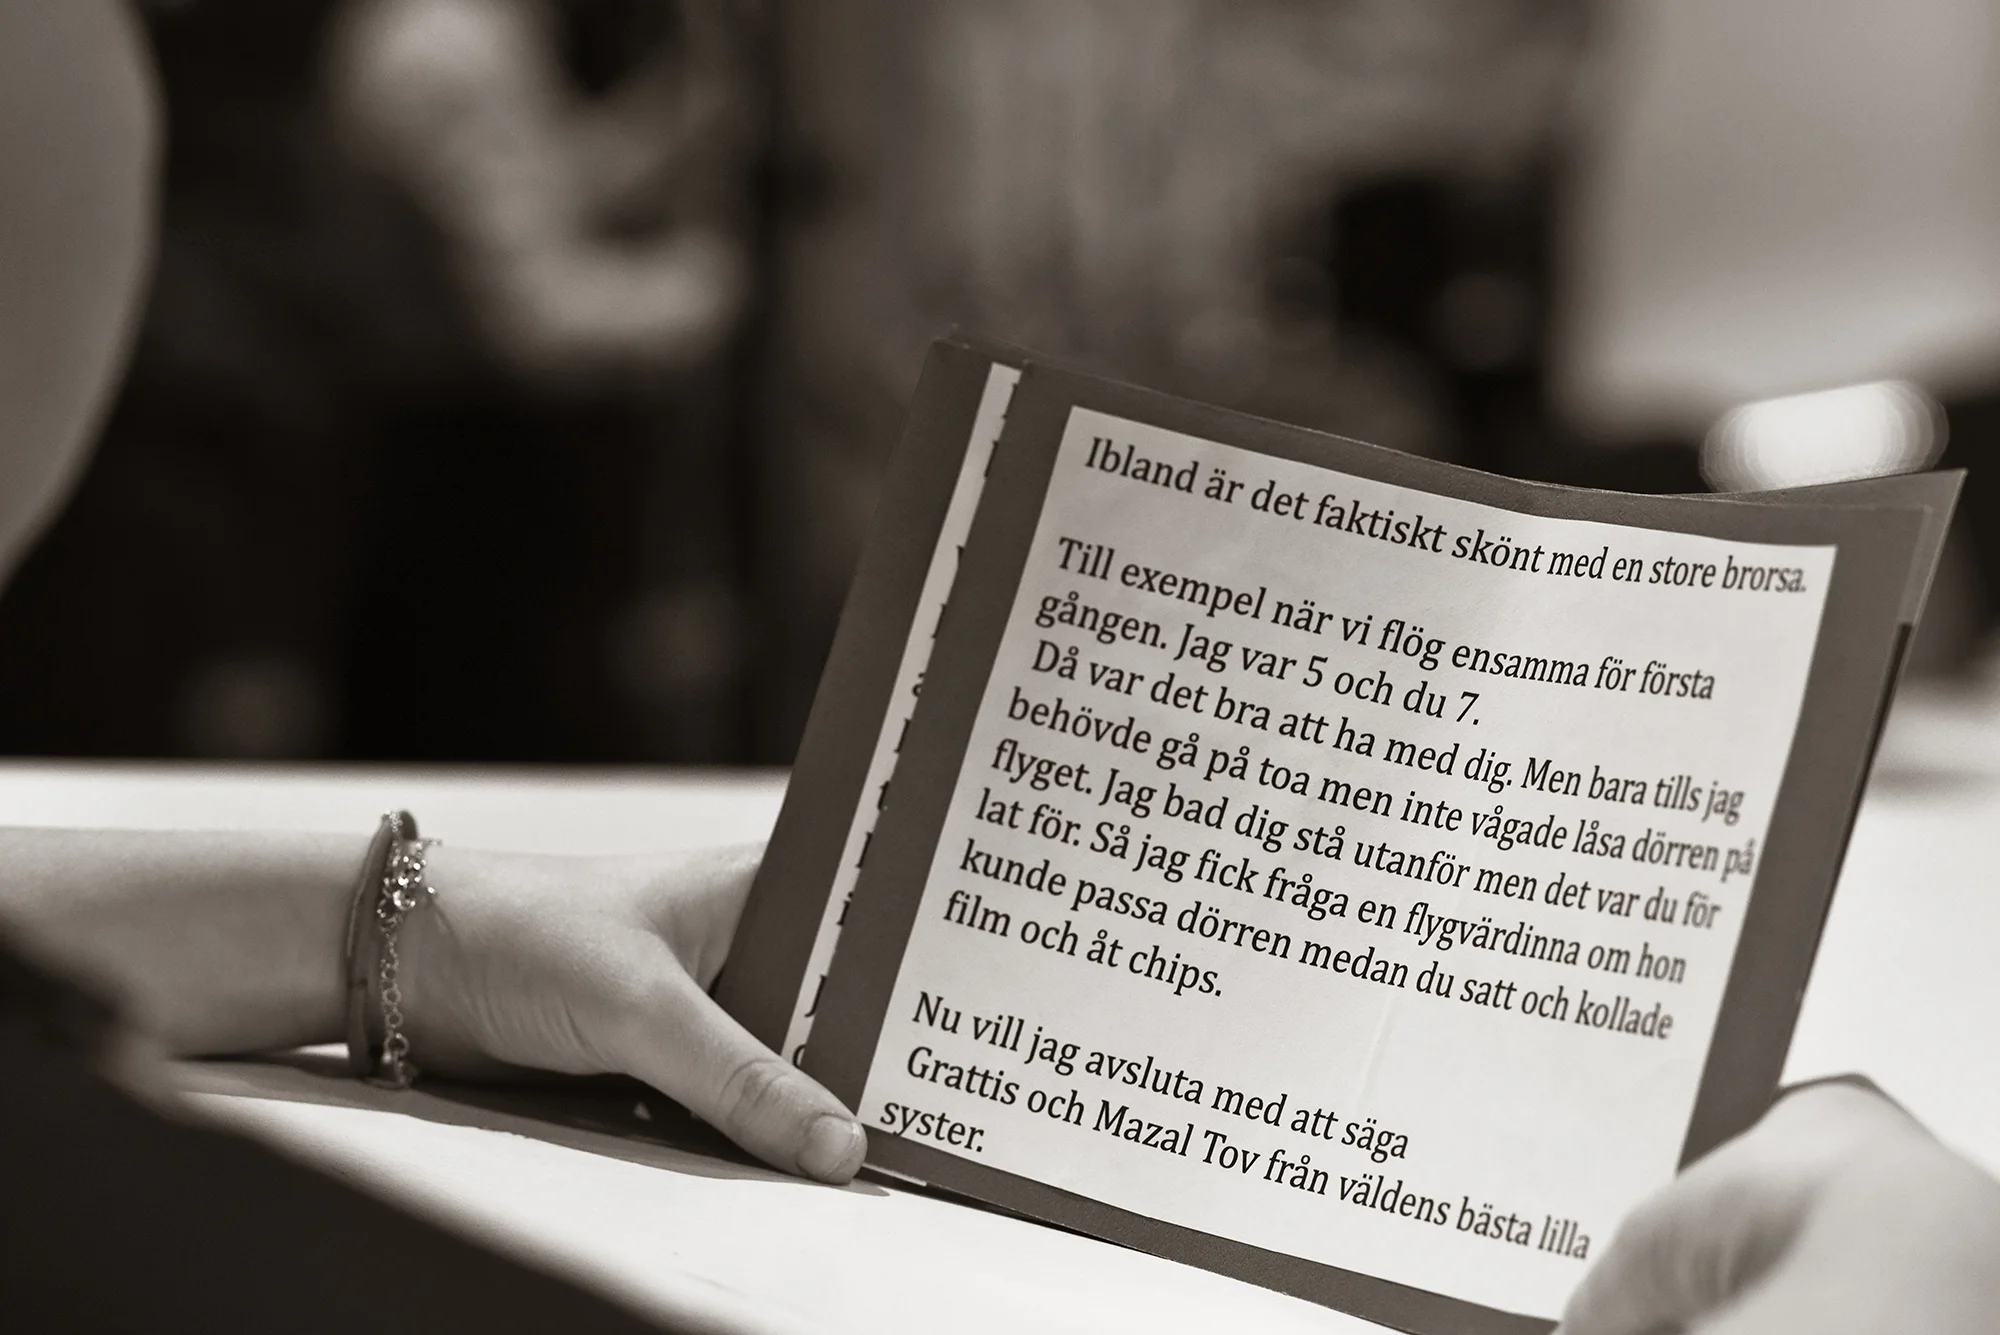 Ibland är det faktiskt skönt med en store brorsa.
Till exempel när vi flög ensamma för första
gången. Jag var 5 och du 7.
Då var det bra att ha med dig. Men bara tills jag
behövde gå på toa men inte vågade låsa dörren på
flyget. Jag bad dig stå utanför men det var du för
lat för. Så jag fick fråga en flygvärdinna om hon
kunde passa dörren medan du satt och kollade
film och åt chips.
Nu vill jag avsluta med att säga
Grattis och Mazal Tov från väldens bästa lilla
syster.